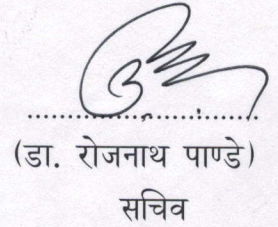 (डा. रोजनाथ पाण्डे)
सचिव